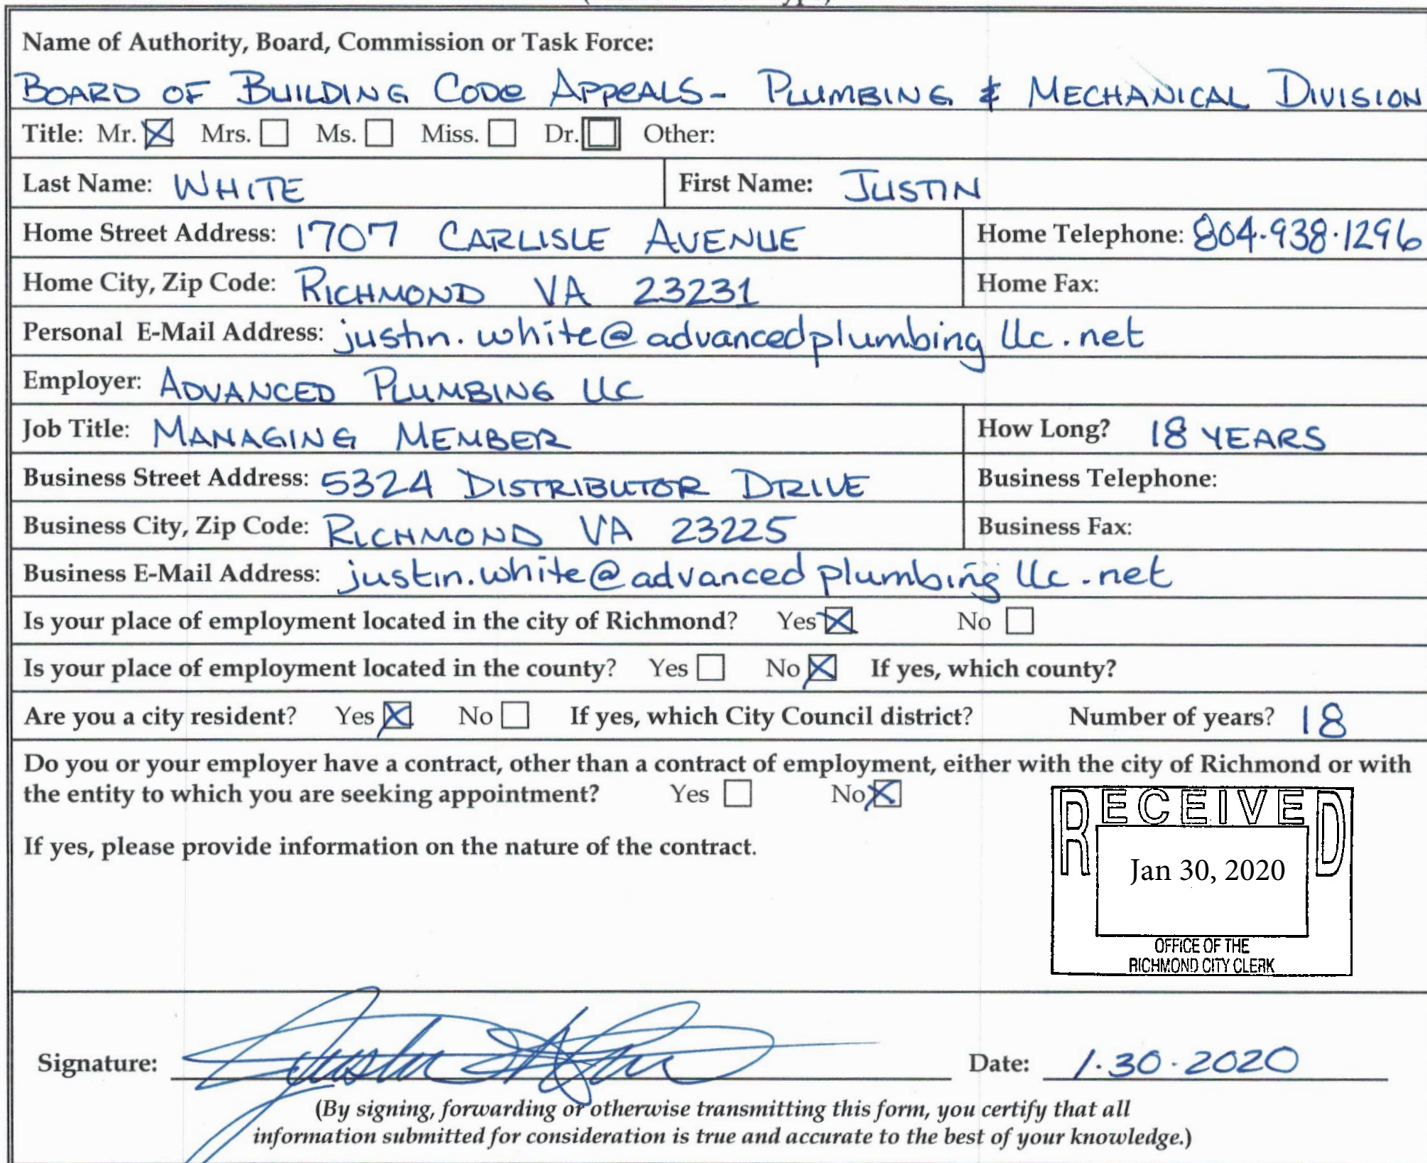 Name of Authority, Board, Commission or Task Force:
BOARD OF BUILDING CODE APPEALS- PLUMBING & MECHANICAL DIVISION
Title: Mr. ☒ Mrs. ☐ Ms. ☐ Miss. ☐ Dr. ☐ Other:
Last Name: WHITE First Name: JUSTIN
Home Street Address: 1707 CARLISLE AVENUE Home Telephone: 804.938.1296
Home City, Zip Code: RICHMOND VA 23231 Home Fax:
Personal E-Mail Address: justin.white@advancedplumbingllc.net
Employer: ADVANCED PLUMBING LLC
Job Title: MANAGING MEMBER How Long? 18 YEARS
Business Street Address: 5324 DISTRIBUTOR DRIVE Business Telephone:
Business City, Zip Code: RICHMOND VA 23225 Business Fax:
Business E-Mail Address: justin.white@advancedplumbingllc.net
Is your place of employment located in the city of Richmond? Yes ☒ No ☐
Is your place of employment located in the county? Yes ☐ No ☒ If yes, which county?
Are you a city resident? Yes ☒ No ☐ If yes, which City Council district? Number of years? 18
Do you or your employer have a contract, other than a contract of employment, either with the city of Richmond or with
the entity to which you are seeking appointment? Yes ☐ No ☒
If yes, please provide information on the nature of the contract.
RECEIVED
Jan 30, 2020
OFFICE OF THE
RICHMOND CITY CLERK
Signature: Date: 1.30.2020
(By signing, forwarding or otherwise transmitting this form, you certify that all
information submitted for consideration is true and accurate to the best of your knowledge.)